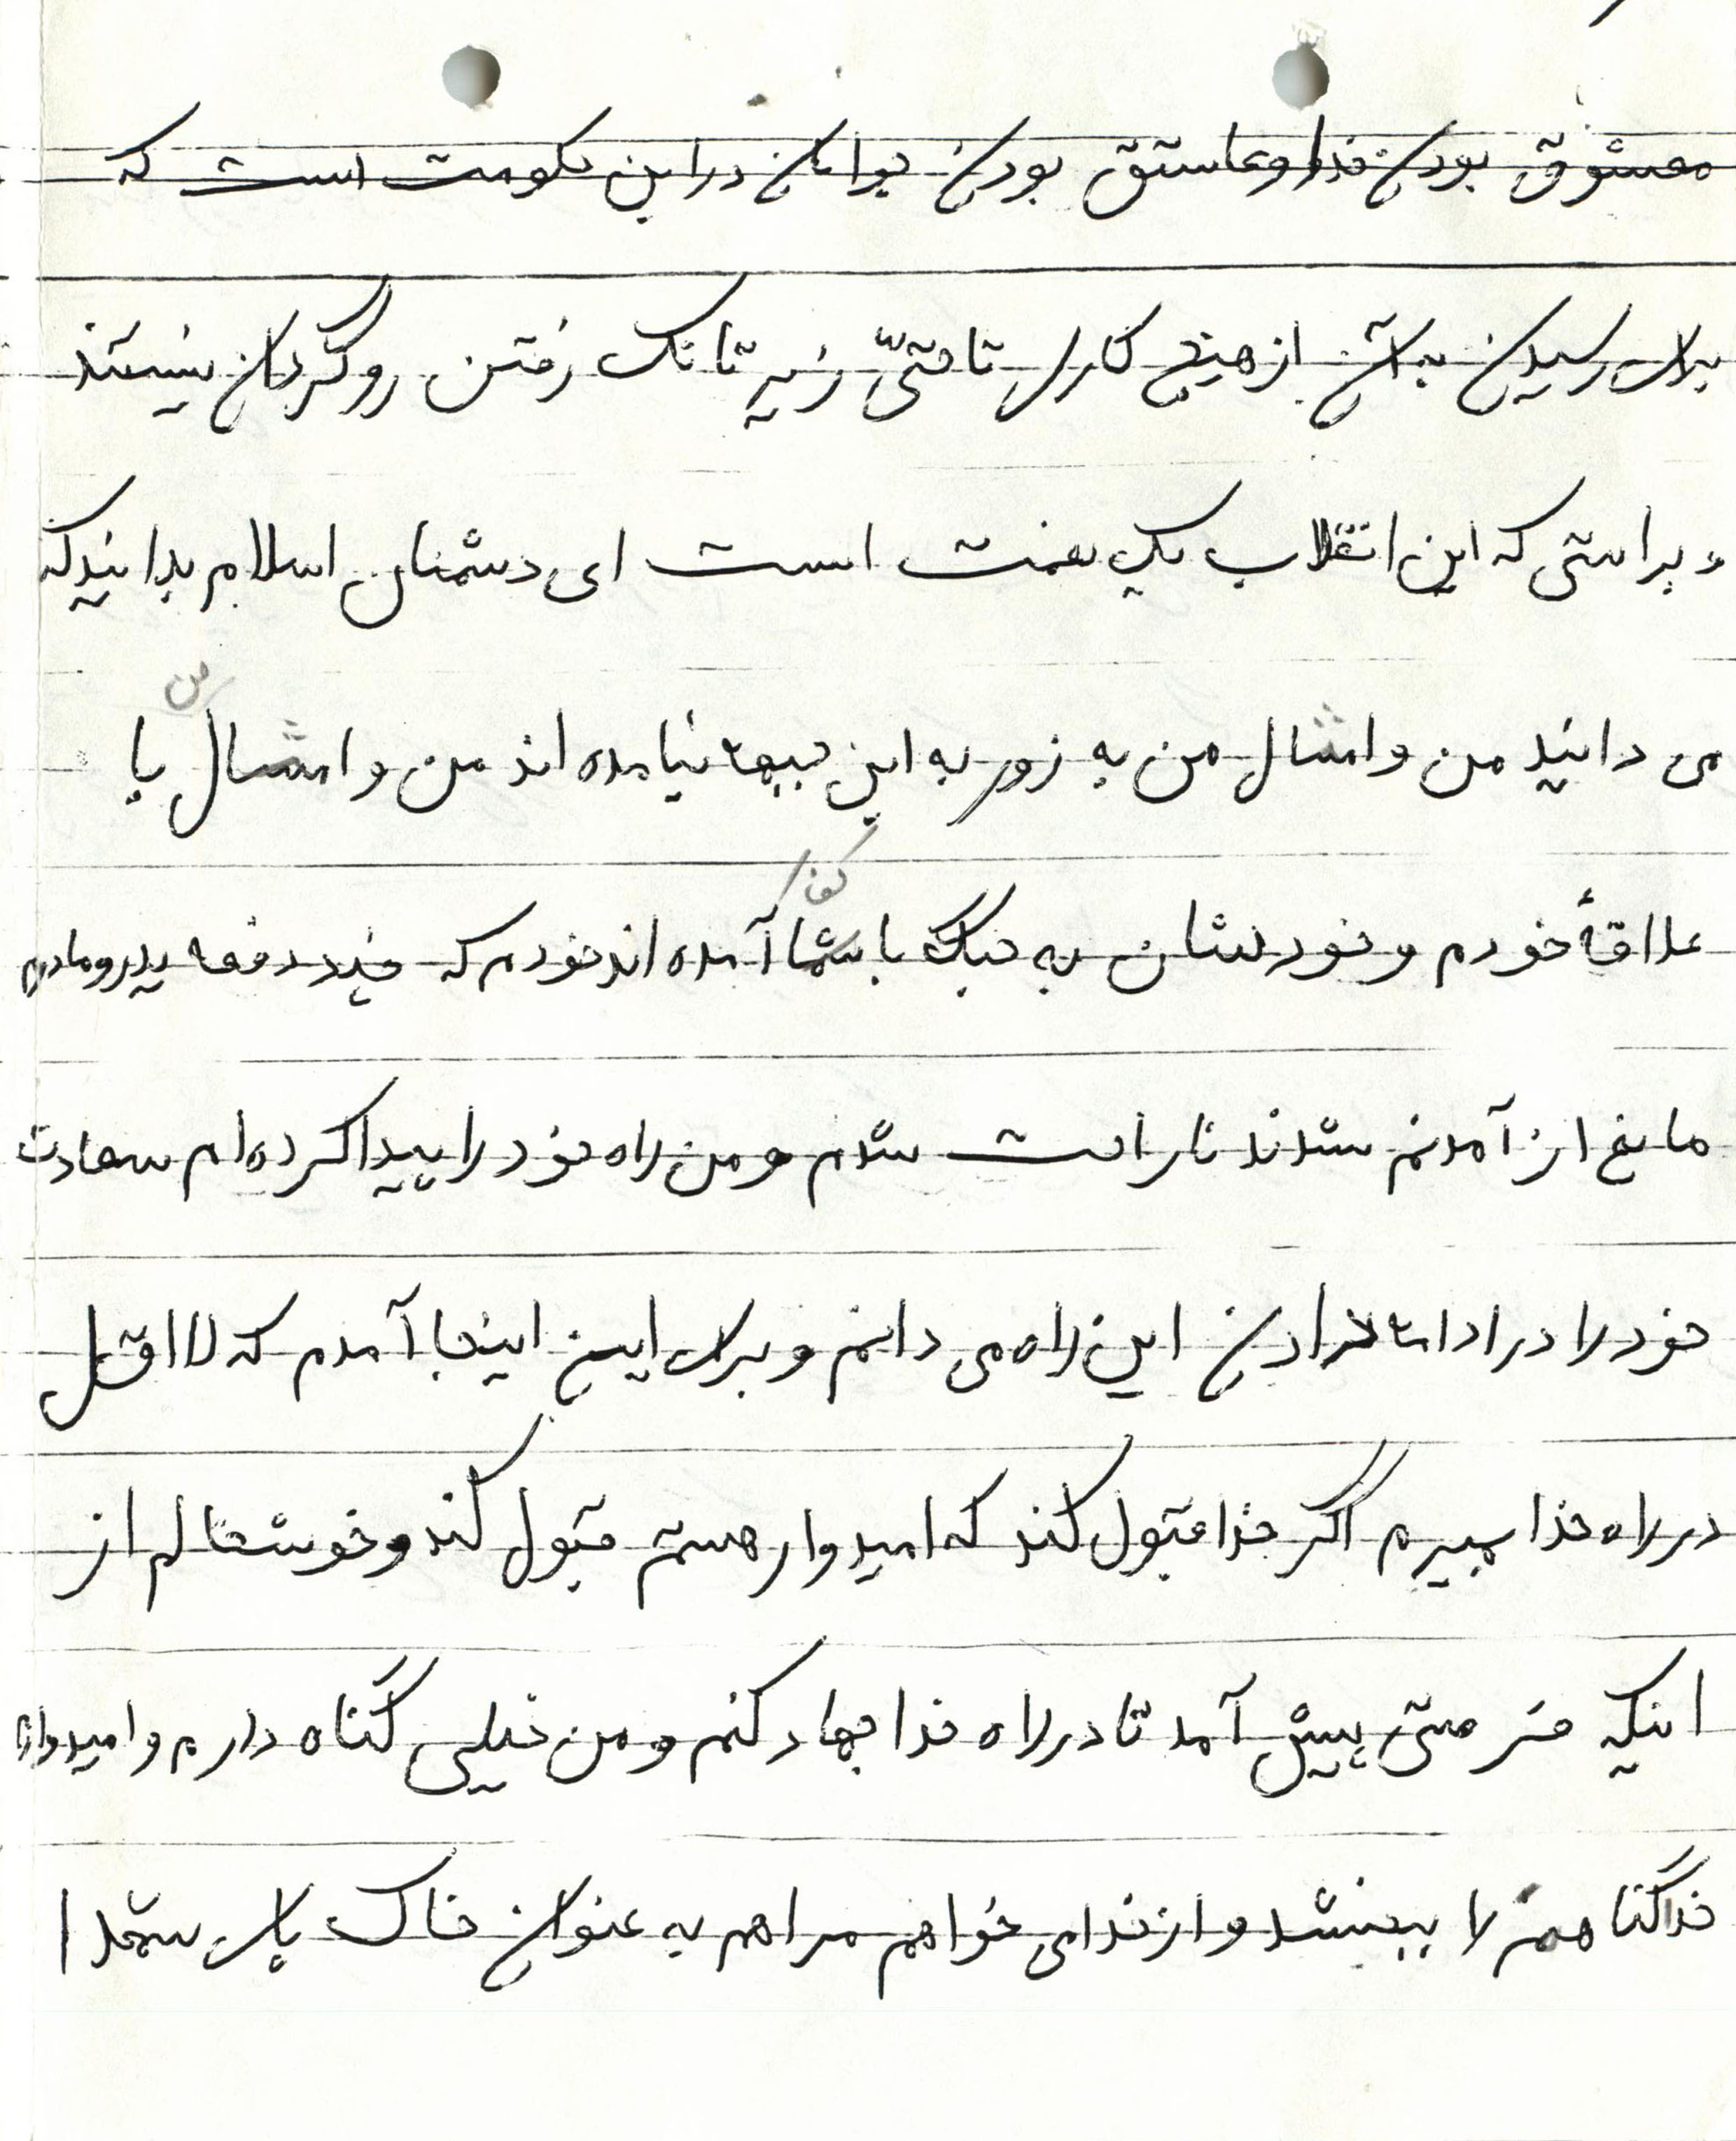 معشوق بودن خدا و عاشق بودن جوانان در این حکومت است که
برای رسیدن به آن از هیچ کاری تا حتّی زیر تانک رفتن روگردان نیستند
و براستی که این انقلاب یک نعمت است ای دشمنان اسلام بدانید که
می دانید من و امثال من به زور به این جبهه نیامده اند من و امثال من با
علاقهٔ خودم و خودشان به جنگ با شما کفار آمده اند خودم که چند دفعه پدر و مادرم
مانع از آمدنم شدند ناراحت شدم و من راه خود را پیدا کرده ام سعادت
خود را در ادامه دادن این راه می دانم و برای این اینجا آمدم که لااقل
در راه خدا بمیرم اگر خدا قبول کند که امیدوار هستم قبول کند و خوشحالم از
اینکه فرصتی پیش آمد تا در راه خدا جهاد کنم و من خیلی گناه دارم و امیدوارم
خدا گناهم را ببخشد و از خدا می خواهم مرا هم به عنوان خاک پای شهدا